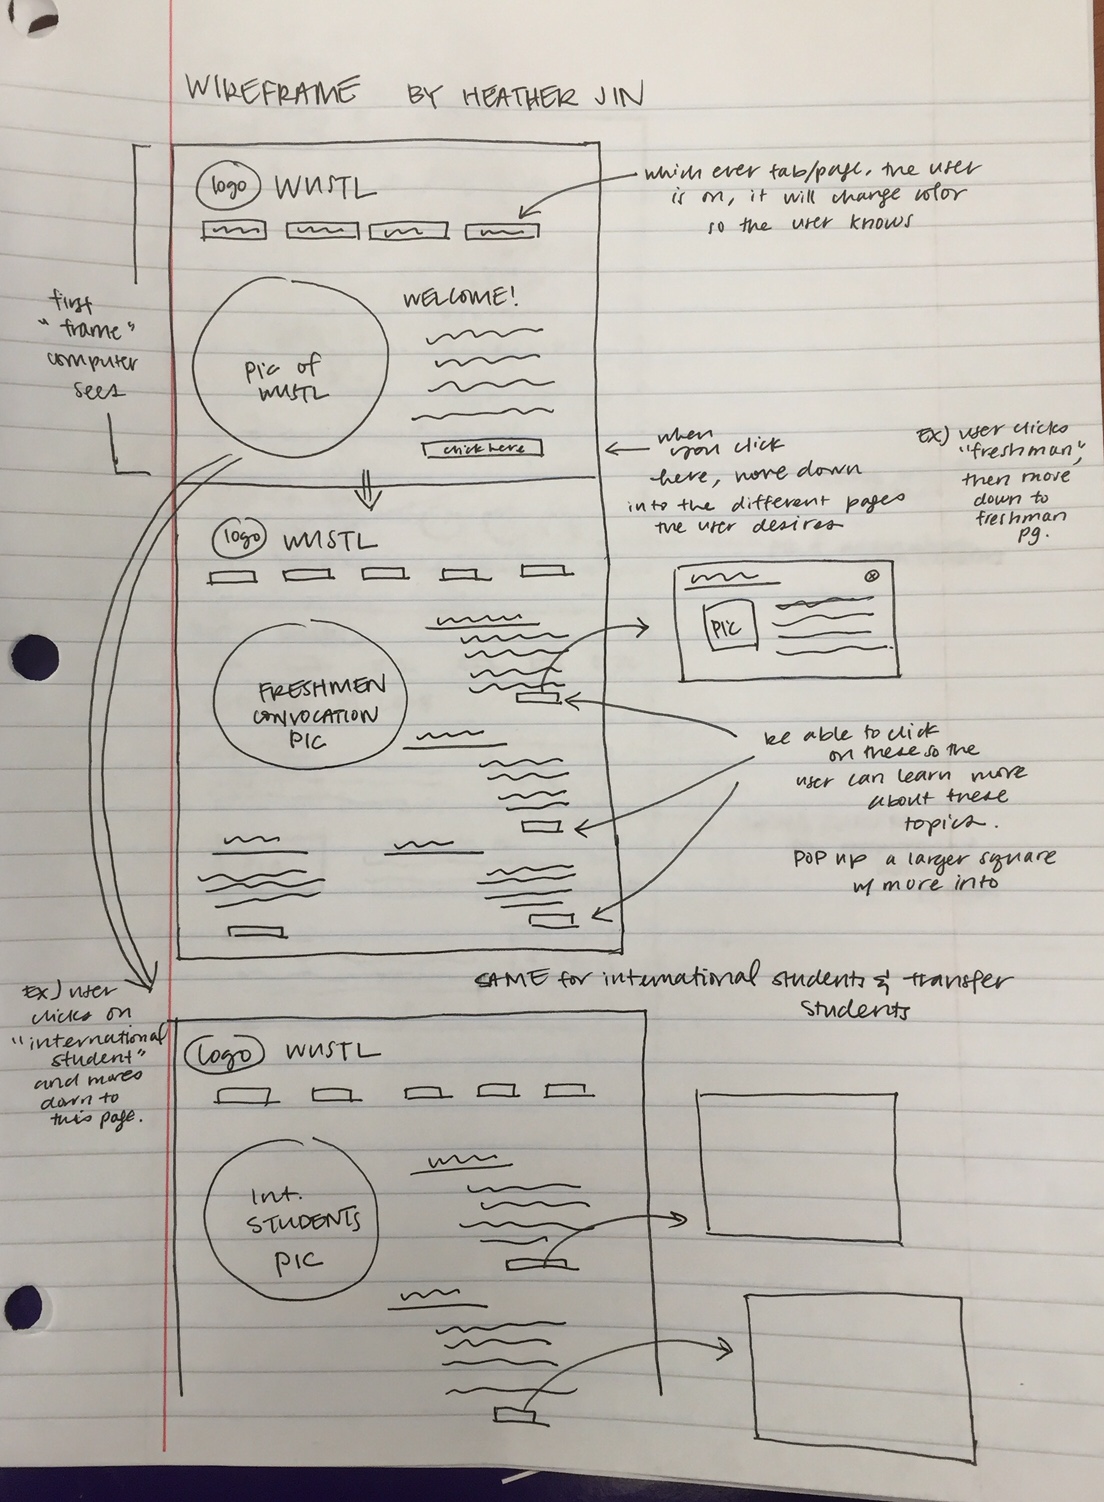 WIREFRAME BY HEATHER JIN
logo WUSTL
which ever tab/page, the user
is on, it will change color
so the user knows
first
"frame"
computer
sees
WELCOME!
pic of
WUSTL
click here
when
you click
here, move down
into the different pages
the user desires
EX) user clicks
"freshman",
then move
down to
freshman
pg.
logo WUSTL
PIC
FRESHMEN
CONVOCATION
PIC
be able to click
on these so the
user can learn more
about these
topics.
POP up a larger square
w/ more info
SAME for international students & transfer
students
EX) user
clicks on
"international
student"
and moves
down to
this page.
logo WUSTL
Int.
STUDENTS
PIC